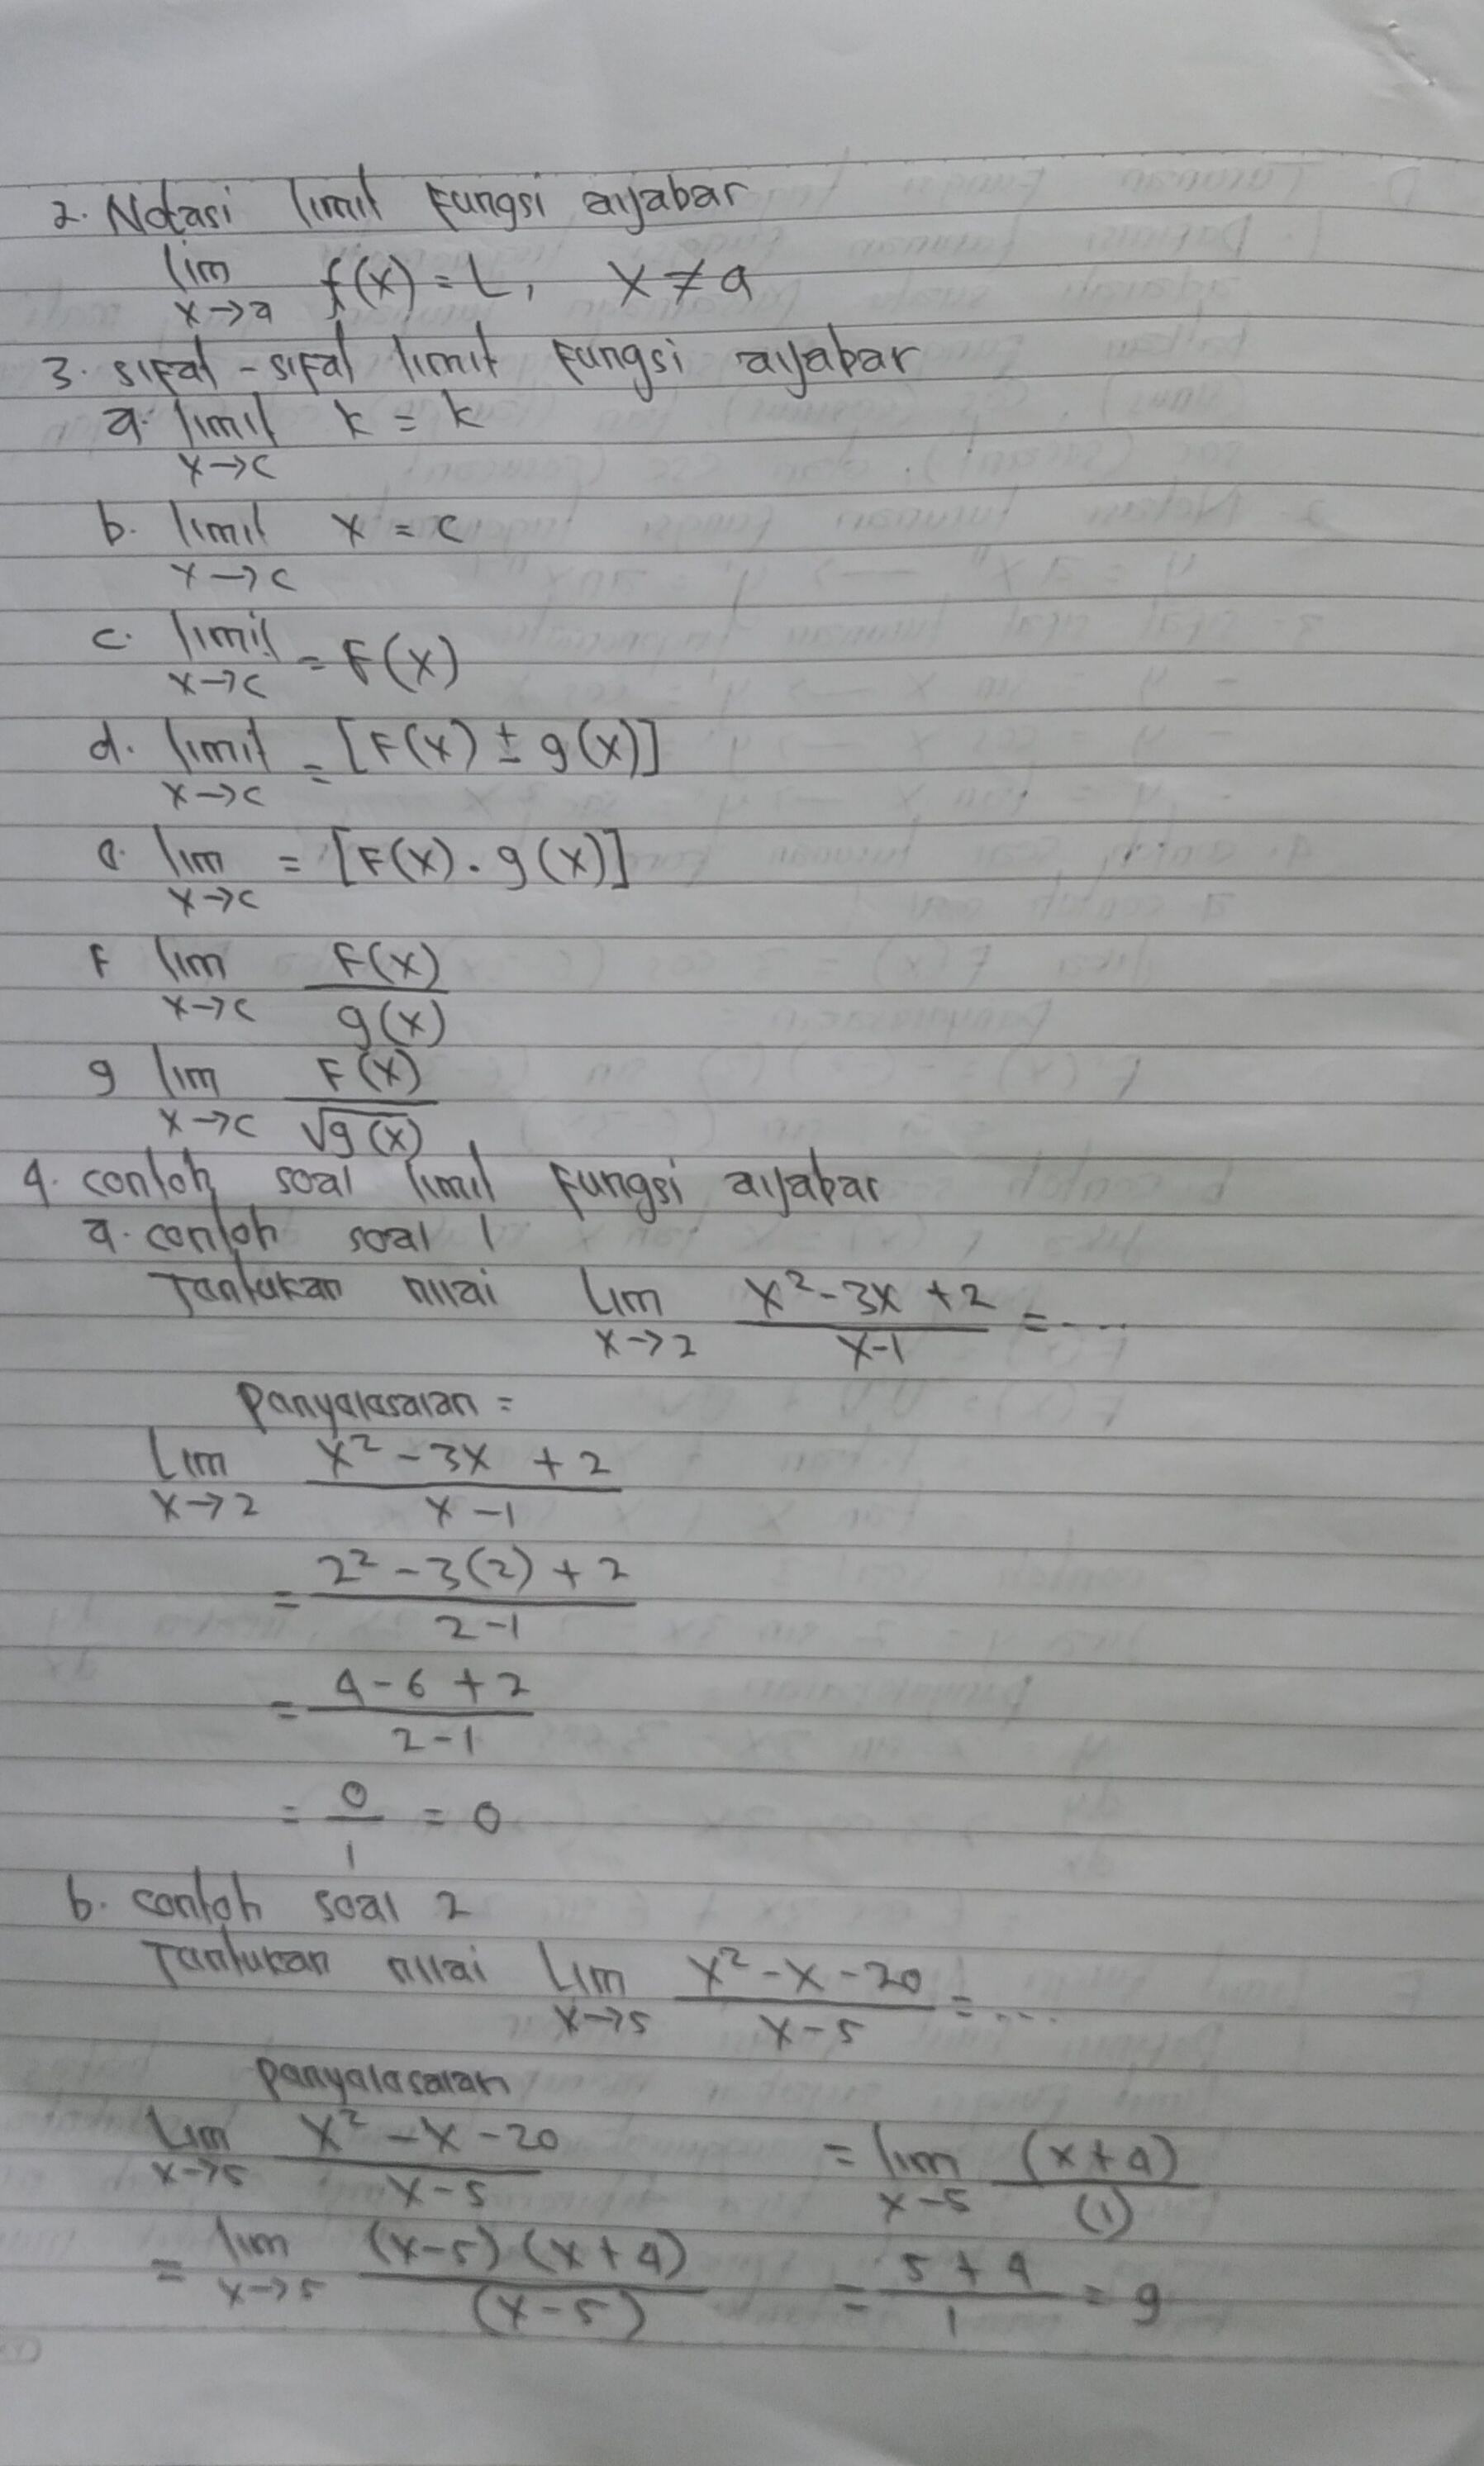 2. Notasi limit fungsi aljabar
lim x→a f(x) = L, x ≠ a
3. sifat - sifat limit fungsi aljabar
a. limit x→c k = k
b. limit x→c x = c
c. limit x→c = F(x)
d. limit x→c = [F(x) ± g(x)]
e. lim x→c = [F(x) . g(x)]
F lim x→c F(x) / g(x)
g lim x→c F(x) / √g(x)
4. contoh soal limit fungsi aljabar
a. contoh soal 1
Tentukan nilai Lim x→2 x² - 3x + 2 / x-1 = ....
Penyelesaian =
Lim x→2 x² - 3x + 2 / x - 1
= 2² - 3(2) + 2 / 2-1
= 4 - 6 + 2 / 2-1
= 0 / 1 = 0
b. contoh soal 2
Tentukan nilai Lim x→5 x² - x - 20 / x-5 = ....
Penyelesaian
Lim x→5 x² - x - 20 / x-5
= lim x→5 (x-5) (x+4) / (x-5)
= lim x-5 (x+4) / (1)
= 5 + 4 / 1 = 9